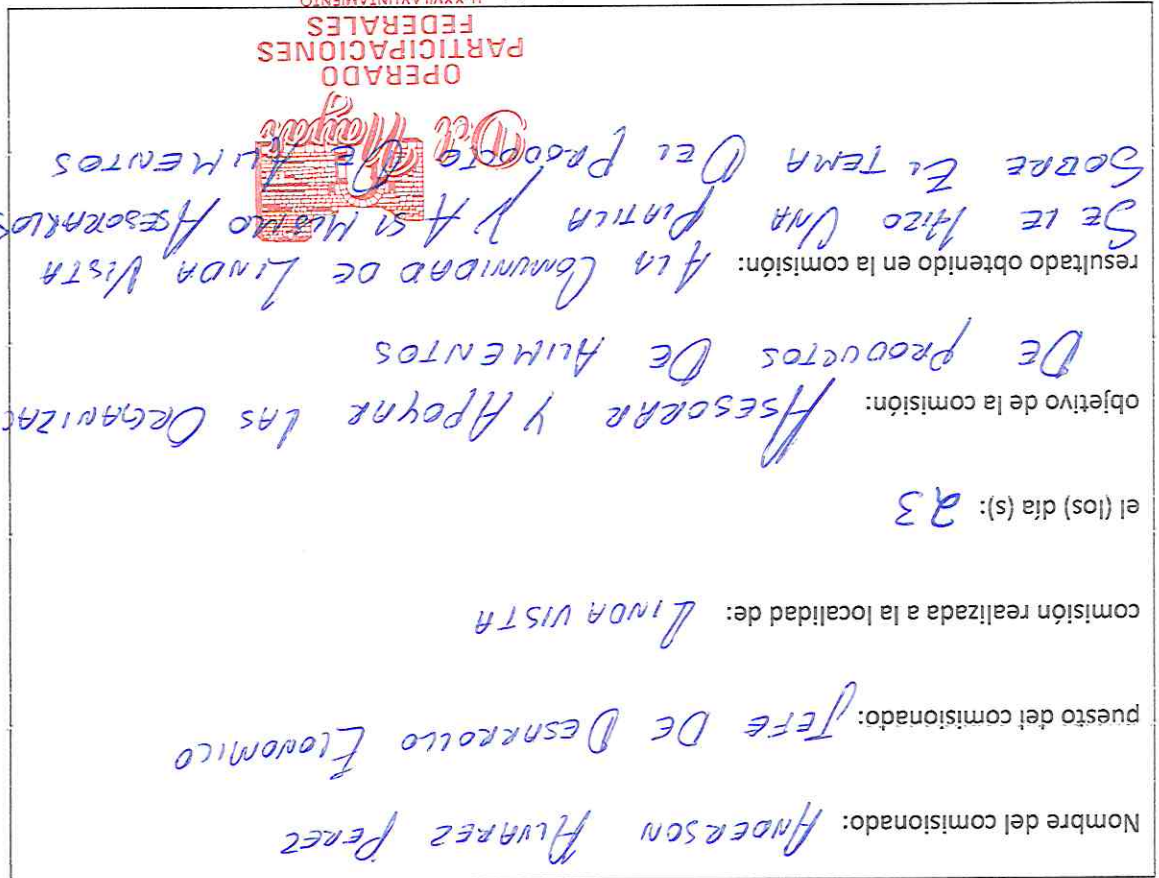 Nombre del comisionado: ANDERSON ALVAREZ PEREZ
puesto del comisionado: JEFE DE DESARROLLO ECONOMICO
comisión realizada a la localidad de: LINDA VISTA
el (los) día (s): 23
objetivo de la comisión: ASESORAR Y APOYAR LAS ORGANIZAC
DE PRODUCTOS DE ALIMENTOS
resultado obtenido en la comisión: A LA COMUNIDAD DE LINDA VISTA
SE LE HIZO UNA PLATICA Y A SI MISMO ASESORARLOS
SOBRE EL TEMA DEL PRODUCTO DE ALIMENTOS
Del Mayab
OPERADO
PARTICIPACIONES
FEDERALES
AYUNTAMIENTO